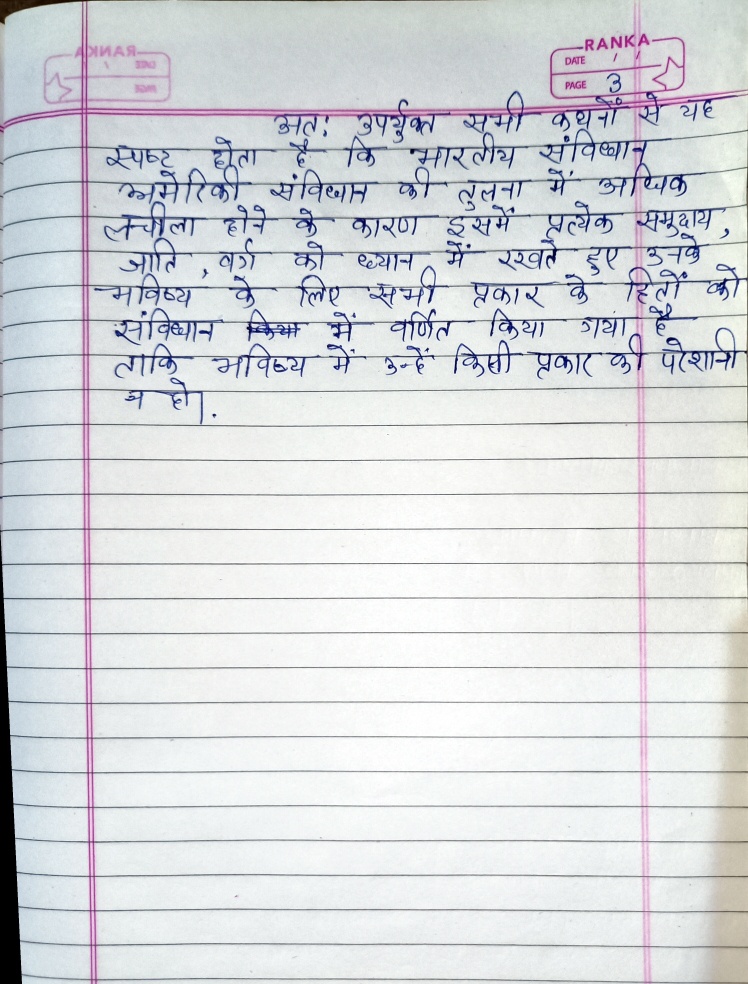 RANKA
DATE / /
PAGE 3
अतः उपर्युक्त सभी कथनों से यह
स्पष्ट होता है कि भारतीय संविधान
अमेरिकी संविधान की तुलना में अधिक
लचीला होने के कारण इसमें प्रत्येक समुदाय,
जाति, वर्ग को ध्यान में रखते हुए उनके
भविष्य के लिए सभी प्रकार के हितों को
संविधान किया में वर्णित किया गया है
ताकि भविष्य में उन्हें किसी प्रकार की परेशानी
न हो।.